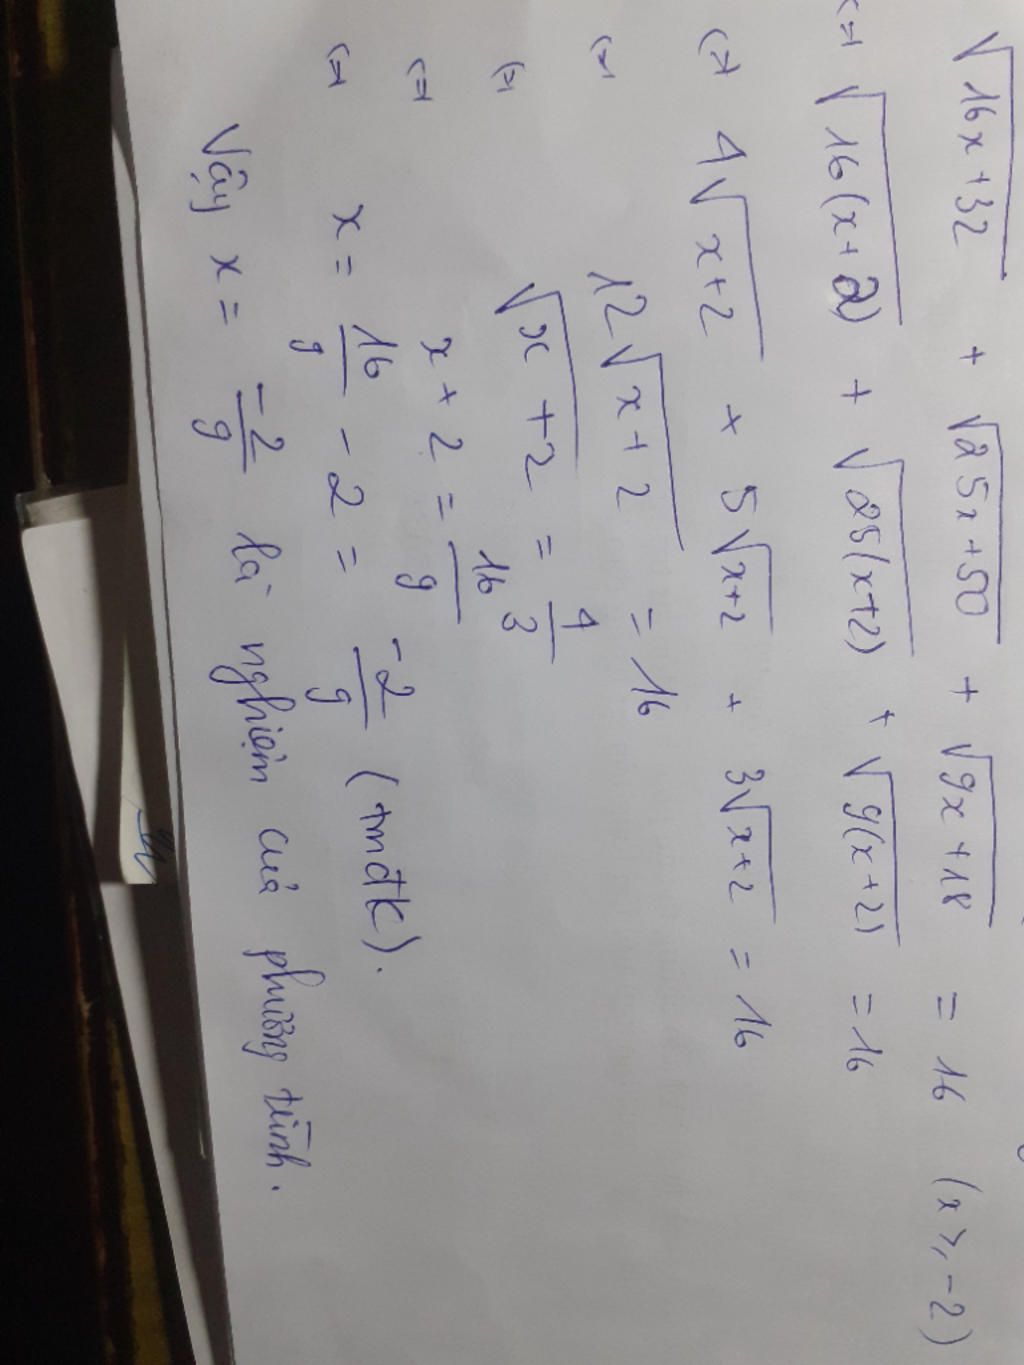 √16x+32 + √25x+50 + √9x+18 = 16 (x ⩾ -2)
<=> √16(x+2) + √25(x+2) + √9(x+2) = 16
<=> 4√x+2 + 5√x+2 + 3√x+2 = 16
<=> 12√x+2 = 16
<=> √x+2 = 4/3
<=> x+2 = 16/9
<=> x = 16/9 - 2 = -2/9 (tmđk).
Vậy x = -2/9 là nghiệm của phương trình.